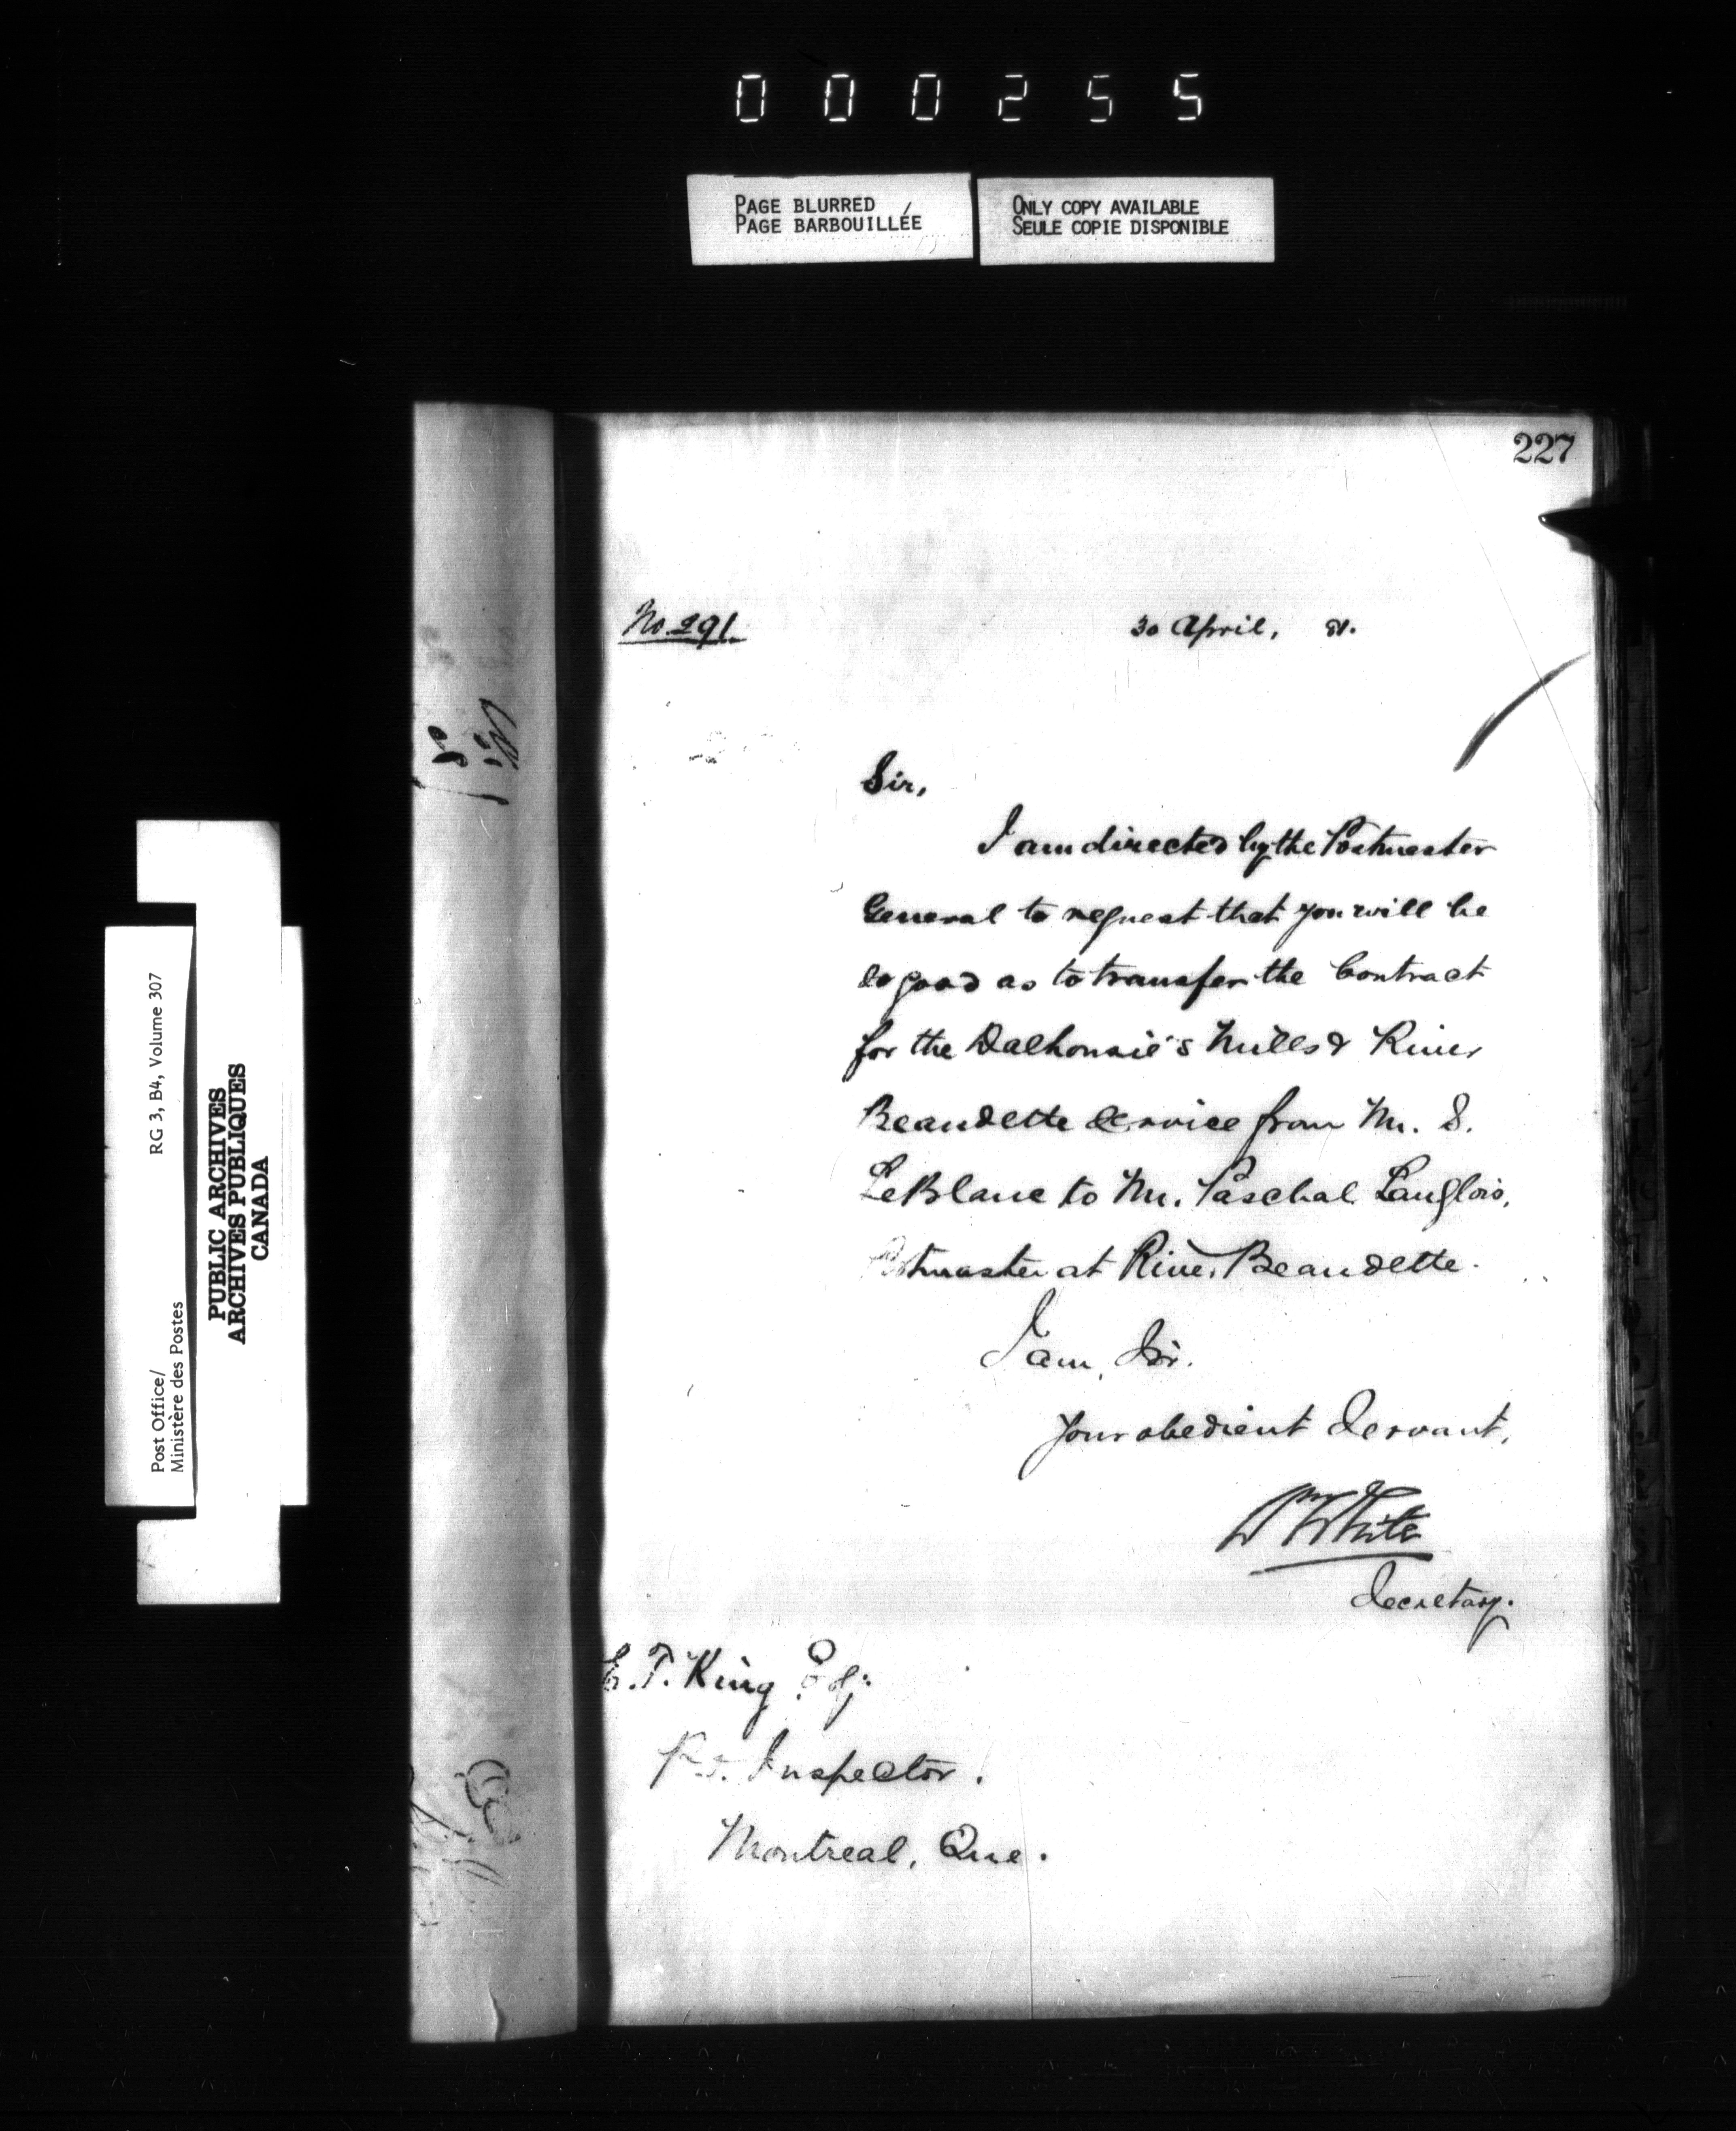 000255
PAGE BLURRED
PAGE BARBOUILLÉE
ONLY COPY AVAILABLE
SEULE COPIE DISPONIBLE
227
No 291
30 April, 81.
Sir,
I am directed by the Postmaster
General to request that you will be
so good as to transfer the Contract
for the Dalhousie's Mills & River
Beaudette Service from Mr. S.
LeBlanc to Mr. Paschal Langlois,
Postmaster at River Beaudette.
I am, Sir.
Your obedient Servant,
Wm White
Secretary.
E. T. King Esq
P.O. Inspector.
Montreal, Que.
Post Office/
Ministère des Postes
RG 3, B4, Volume 307
PUBLIC ARCHIVES
ARCHIVES PUBLIQUES
CANADA